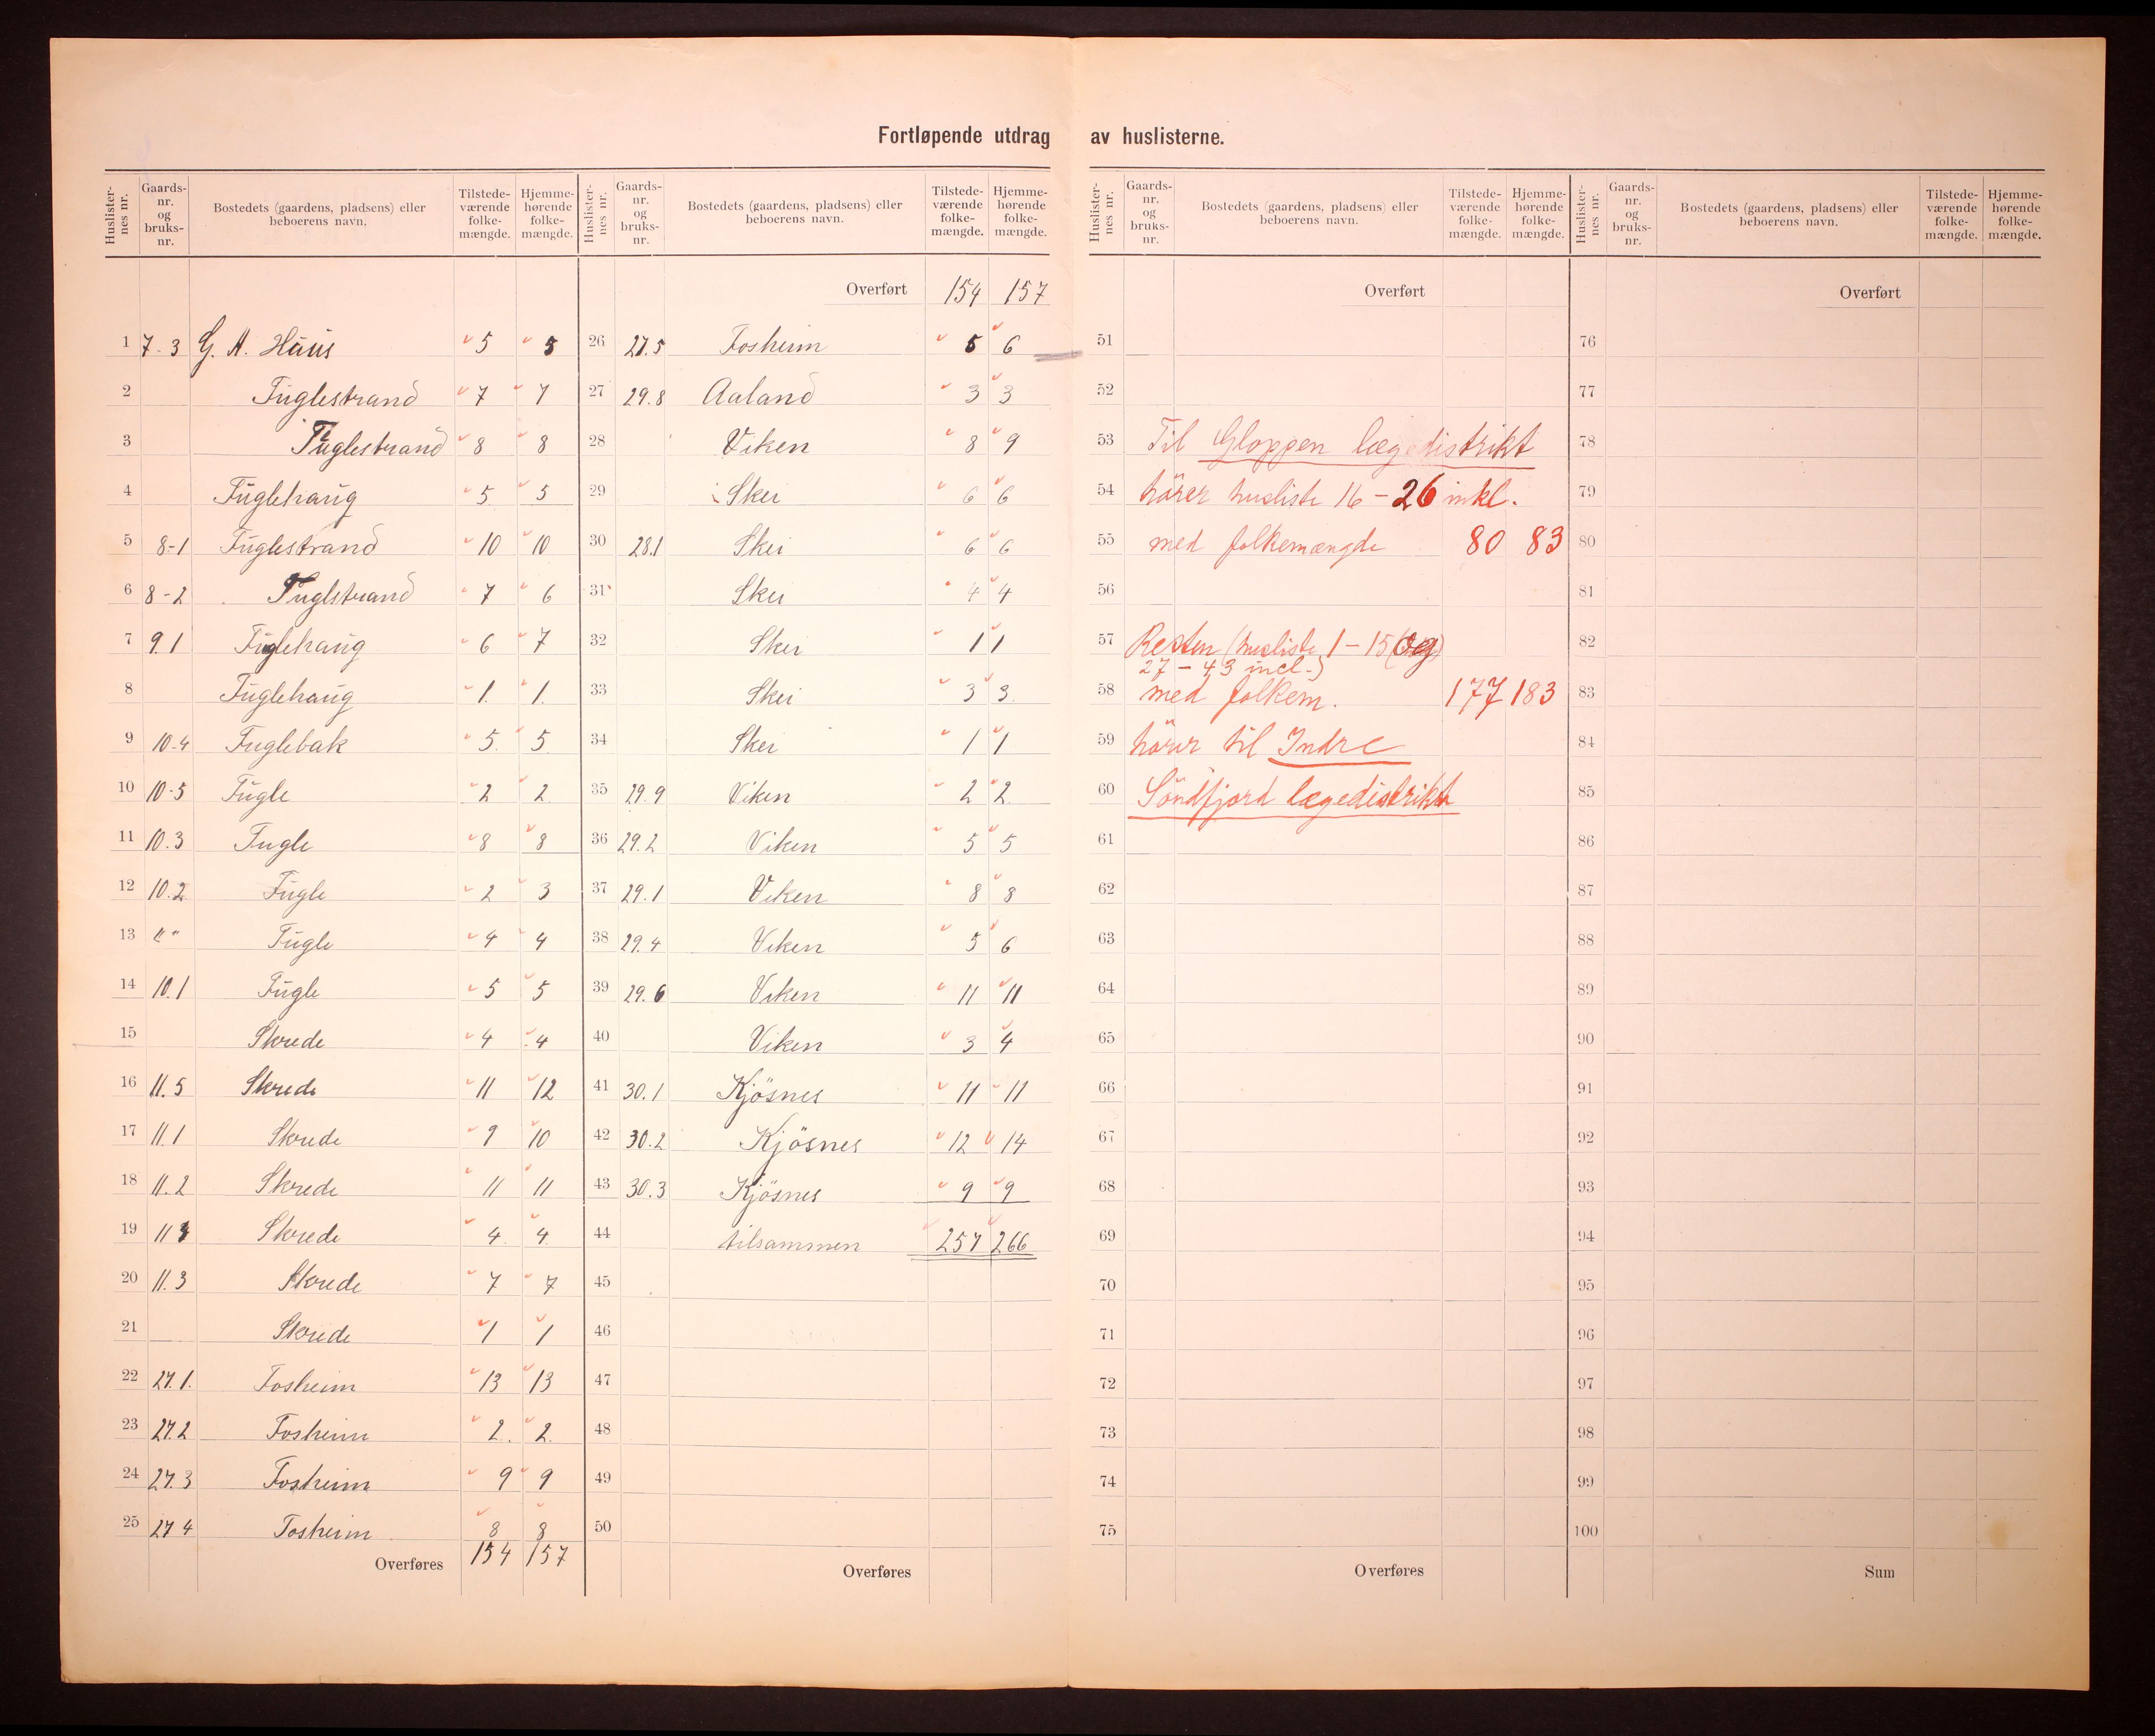 Fortløpende utdrag av huslisterne.
Huslisternes nr. Gaards-nr. og bruks-nr. Bostedets (gaardens, pladsens) eller beboerens navn. Tilstede-værende folke-mængde. Hjemme-hørende folke-mængde.
Huslisternes nr. Gaards-nr. og bruks-nr. Bostedets (gaardens, pladsens) eller beboerens navn. Tilstede-værende folke-mængde. Hjemme-hørende folke-mængde.
Huslisternes nr. Gaards-nr. og bruks-nr. Bostedets (gaardens, pladsens) eller beboerens navn. Tilstede-værende folke-mængde. Hjemme-hørende folke-mængde.
Huslisternes nr. Gaards-nr. og bruks-nr. Bostedets (gaardens, pladsens) eller beboerens navn. Tilstede-værende folke-mængde. Hjemme-hørende folke-mængde.
1 7-3 G. A. Hüus 5 5
2 Fuglestrand 7 7
3 Fuglestrand 8 8
4 Fuglehaug 5 5
5 8-1 Fuglestrand 10 10
6 8-2 Fuglstrand 7 6
7 9.1 Fuglehaug 6 7
8 Fuglehaug 1. 1.
9 10-4 Fuglebak 5. 5
10 10-5 Fugle 2 2
11 10.3 Fugle 8 8
12 10.2 Fugle 2 3
13 " " Fugle 4 4
14 10.1 Fugle 5 5
15 Skrede 4 4
16 11.5 Skrede 11 12
17 11.1 Skrede 9 10
18 11.2 Skrede 11 11
19 11 Skrede 4 4
20 11.3 Skrede 7 7
21 Skrede 1 1
22 27.1. Fosheim 13 13
23 27.2 Fosheim 2. 2.
24 27.3 Fosheim 9 9
25 27 4 Fosheim 8 8
Overføres 154 157
Overført 154 157
26 27.5 Fosheim 5 6
27 29.8 Aaland 3 3
28 Viken 8 9
29 Skei 6 6
30 28.1 Skei 6 6
31 Skei 4 4
32 Skei 1 1
33 Skei 3 3.
34 Skei 1 1
35 29.9 Viken 2 2
36 29.2 Viken 5 5
37 29.1 Viken 8 8
38 29.4 Viken 5 6
39 29.6 Viken 11 11
40 Viken 3 4
41 30.1 Kjösnes 11 11
42 30.2 Kjösnes 12 14
43 30.3 Kjösnes 9 9
44 tilsammen 257 266
45
46
47
48
49
50
Overføres
Overført
51
52
53 Til Gloppen lægedistrikt
54 hörer husliste 16 - 26 inkl.
55 med folkemængde 80 83
56
57 Resten (husliste 1 - 15 og
27 - 43 incl.)
58 med folkem. 177 183
59 hörer til Indre
60 Söndfjord lægedistrikt
61
62
63
64
65
66
67
68
69
70
71
72
73
74
75
Overføres
Overført
76
77
78
79
80
81
82
83
84
85
86
87
88
89
90
91
92
93
94
95
96
97
98
99
100
Sum